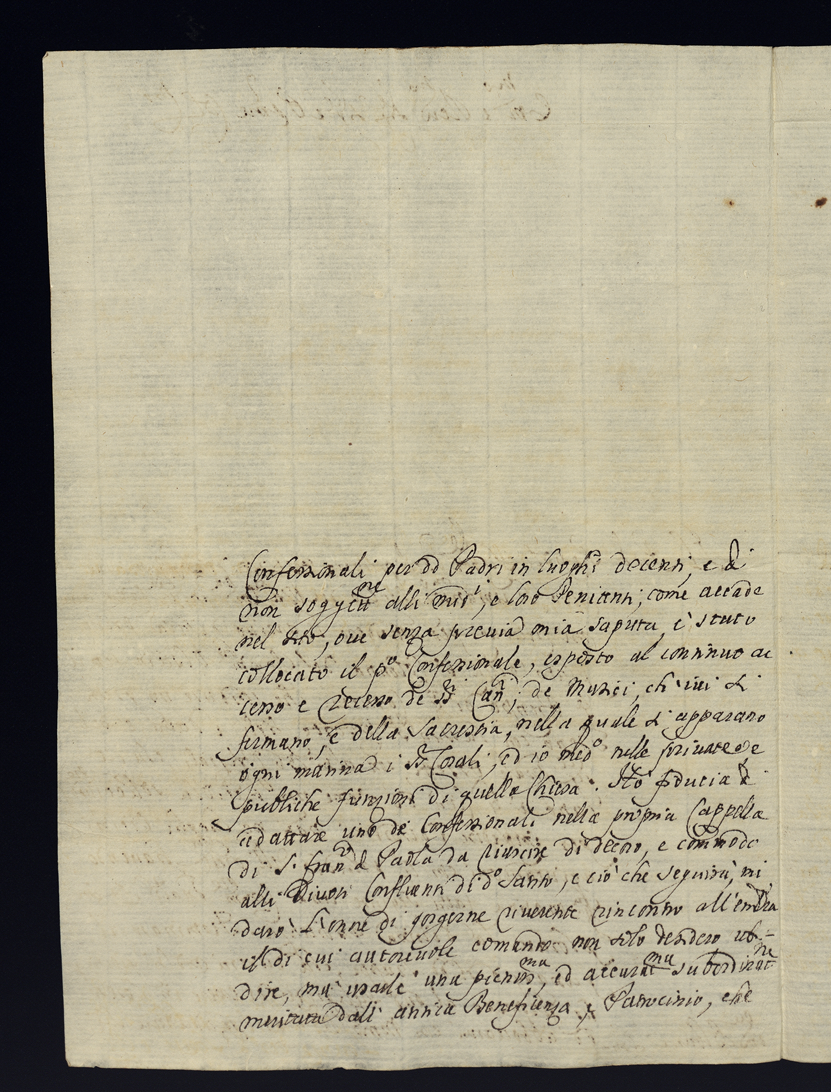 Confessionali per dd Padri in luoghi decenti, e di
non sogge alli mis, e loro Penitenti, come accade
nel sito, ove senza previa mia saputa, è stato
collocato il po Confessionale, esposto al continuo ac
cesso e recesso de SSri Cani, de Musici, ch'ivi si
fermano, e della Sacrestia, nella quale si apparano
ogni mattina i SSri Corali, ed io medo nelle private e
publiche funzioni di quella Chiesa. Hò fiducia di
adattare uno de Confessionali nella propria Cappella
di S. Franco di Paola da riuscire di decoro, e commodo
alli Divoti Confluenti di do Santo, e ciò che seguirà, mi
darò l'onore di porgerne riverente rincontro all'
il di cui autorevole comando non solo desidero ub=
dire, ma usarle una pienma, ed accuratma subordinatne
meritata dall'antica Beneficenza, e Patrocinio, che